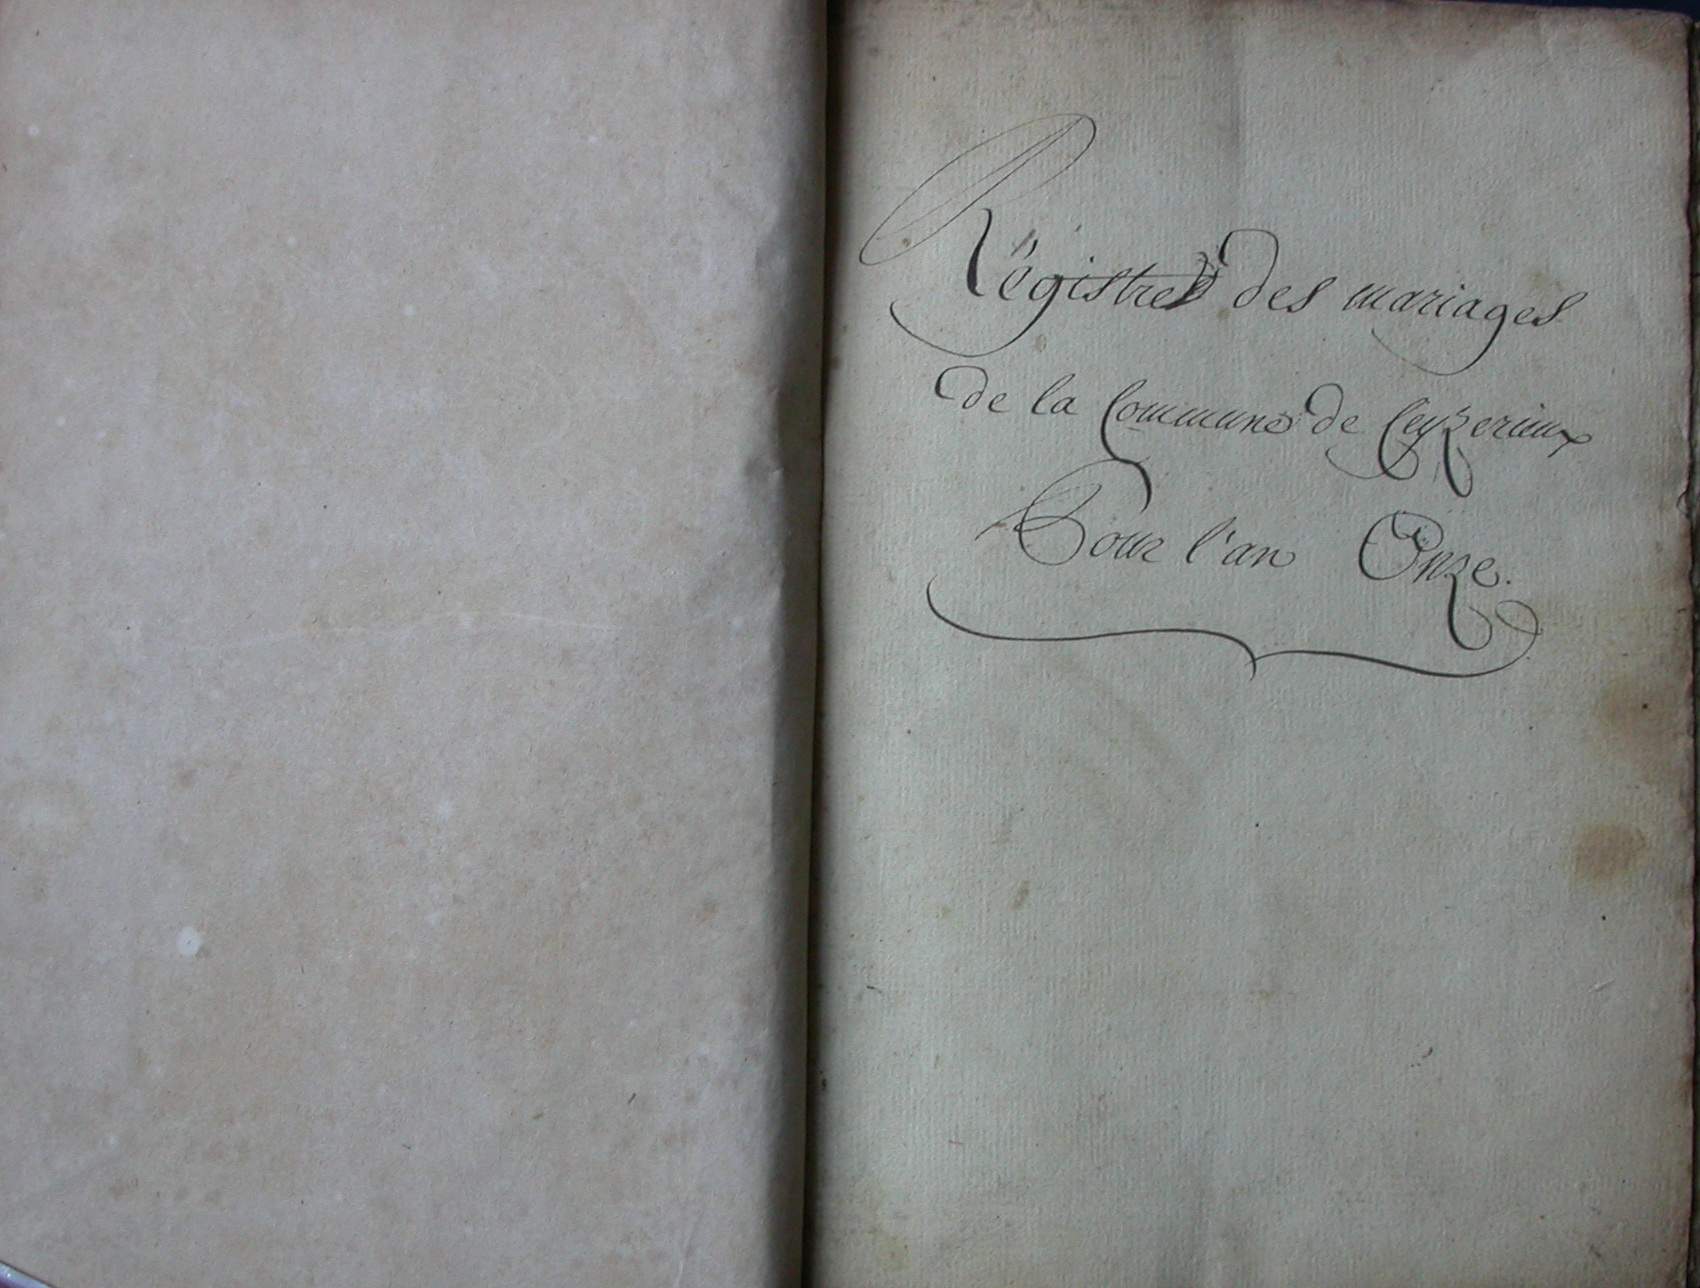 Régistre des mariages
de la Commune de Ceyzerieux
Pour l'an Onze.